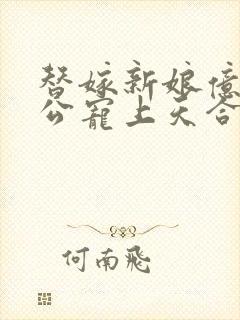 替嫁新娘億
公寵上天合
何南飛